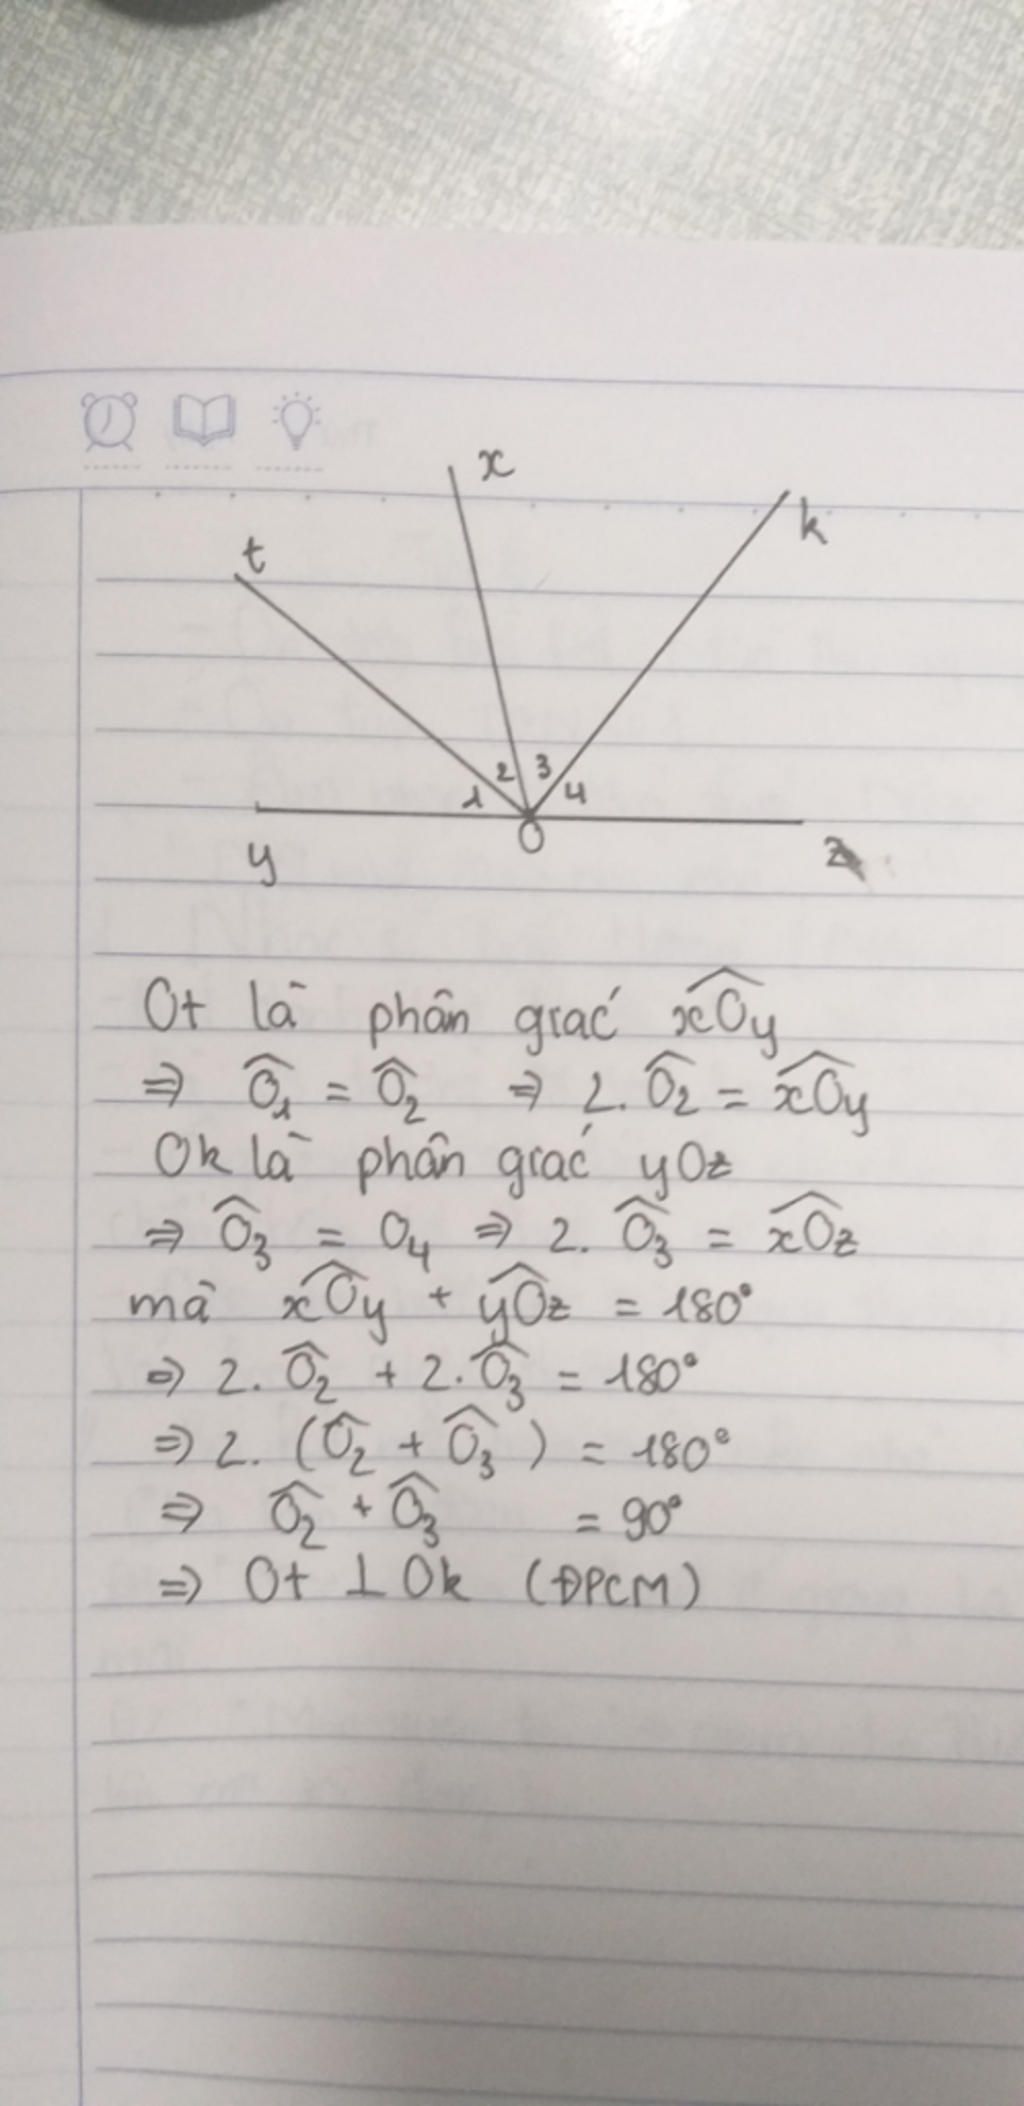 x
k
t
2 3
1 4
O
y z
Ot là phân giác $\widehat{xOy}$
⇒ $\widehat{O_1}$ = $\widehat{O_2}$ ⇒ 2. $\widehat{O_2}$ = $\widehat{xOy}$
Ok là phân giác yOz
⇒ $\widehat{O_3}$ = O₄ ⇒ 2. $\widehat{O_3}$ = $\widehat{xOz}$
mà $\widehat{xOy}$ + $\widehat{yOz}$ = 180°
⇒ 2. $\widehat{O_2}$ + 2. $\widehat{O_3}$ = 180°
⇒ 2. ($\widehat{O_2}$ + $\widehat{O_3}$) = 180°
⇒ $\widehat{O_2}$ + $\widehat{O_3}$ = 90°
⇒ Ot ⊥ Ok (ĐPCM)